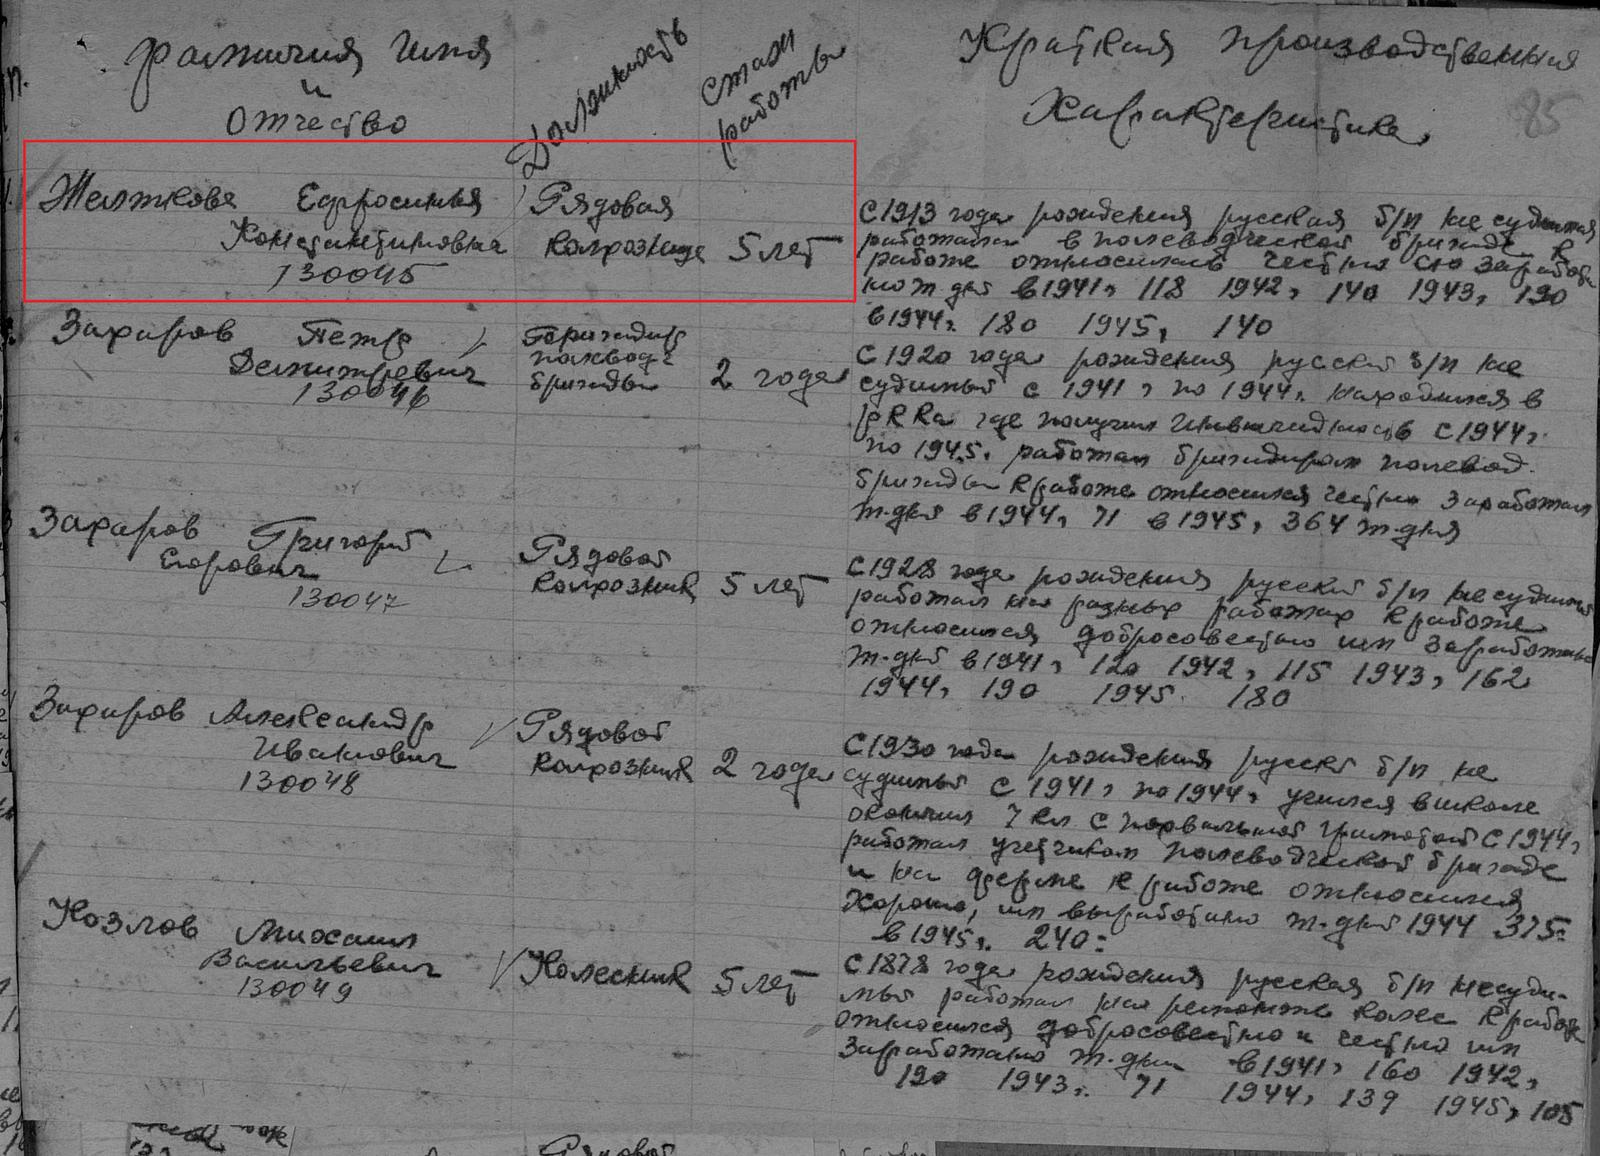 Фамилия Имя
и
Отчество
Должность
Стаж
работы
Краткая производственная
Характеристика
85
Желткова Ефросинья
Константиновна
130045
Рядовая
колхозница
5 лет
С 1913 года рождения русская б/п не судимая
работала в полеводческой бригаде к
работе относилась честно
в 1941г 118 1942г 140 1943г 190
в 1944г. 180 1945г 140
Захаров Петр
Дмитревич
130046
Бригадир
полевод
бригады
2 года
С 1920 года рождения русский б/п не
судимый с 1941г по 1944г. находился в
РККа где получил с 1944г.
по 1945г. работал бригадиром полевод.
бригады к работе относился честно заработал
т-дней в 1944г 71 в 1945г 364 т-дня
Захаров Григорий
Егорович
130047
Рядовой
колхозник
5 лет
С 1928 года рождения русский б/п не судимый
работал на разных работах к работе
относился добросовестно им заработано
т-дней в 1941г 120 1942г 115 1943г 162
1944г. 190 1945. 180
Захаров Александр
Иванович
130048
Рядовой
колхозник
2 года
С 1930 года рождения русский б/п не
судимый с 1941г по 1944г учился в школе
окончил 7 кл с похвальной грамотой с 1944г
работал учетчиком полеводческой бригаде
и на ферме к работе относился
Хорошо, им выработано т-дней 1944 375=
в 1945г. 240=
Козлов Михаил
Васильевич
130049
Колесник
5 лет
С 1878 года рождения русская б/п несуди-
мый работал на ремонте колес к работе
относился добросовестно и честно им
Заработано т-дней в 1941г 160 1942г
190 1943г. 71 1944г 139 1945г 105
Рядовой